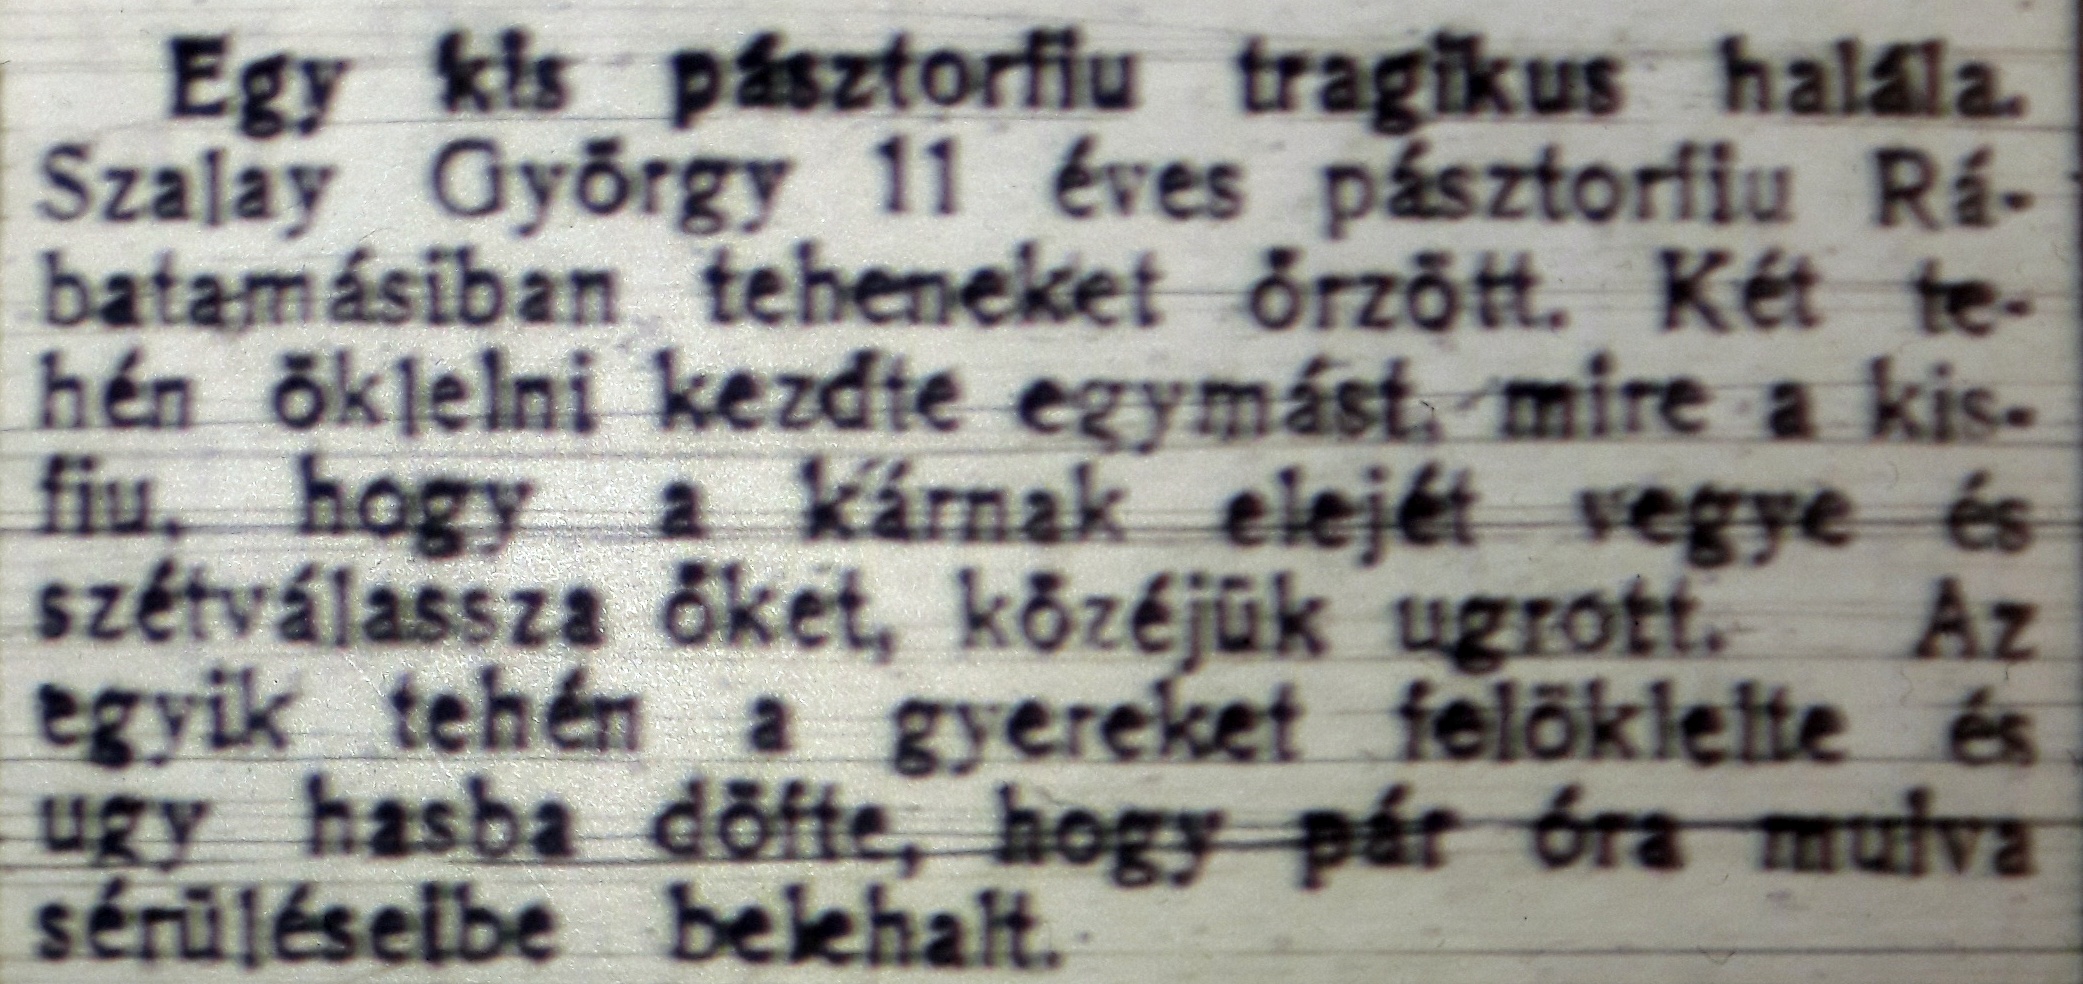 Egy kis pásztorfiu tragikus halála.
Szalay György 11 éves pásztorfiu Rá-
batamásiban teheneket őrzött. Két te-
hén öklelni kezdte egymást, mire a kis-
fiu, hogy a kárnak elejét vegye és
szétválassza őket, közéjük ugrott. Az
egyik tehén a gyereket felöklelte és
ugy hasba döfte, hogy pár óra mulva
sérüléseibe belehalt.